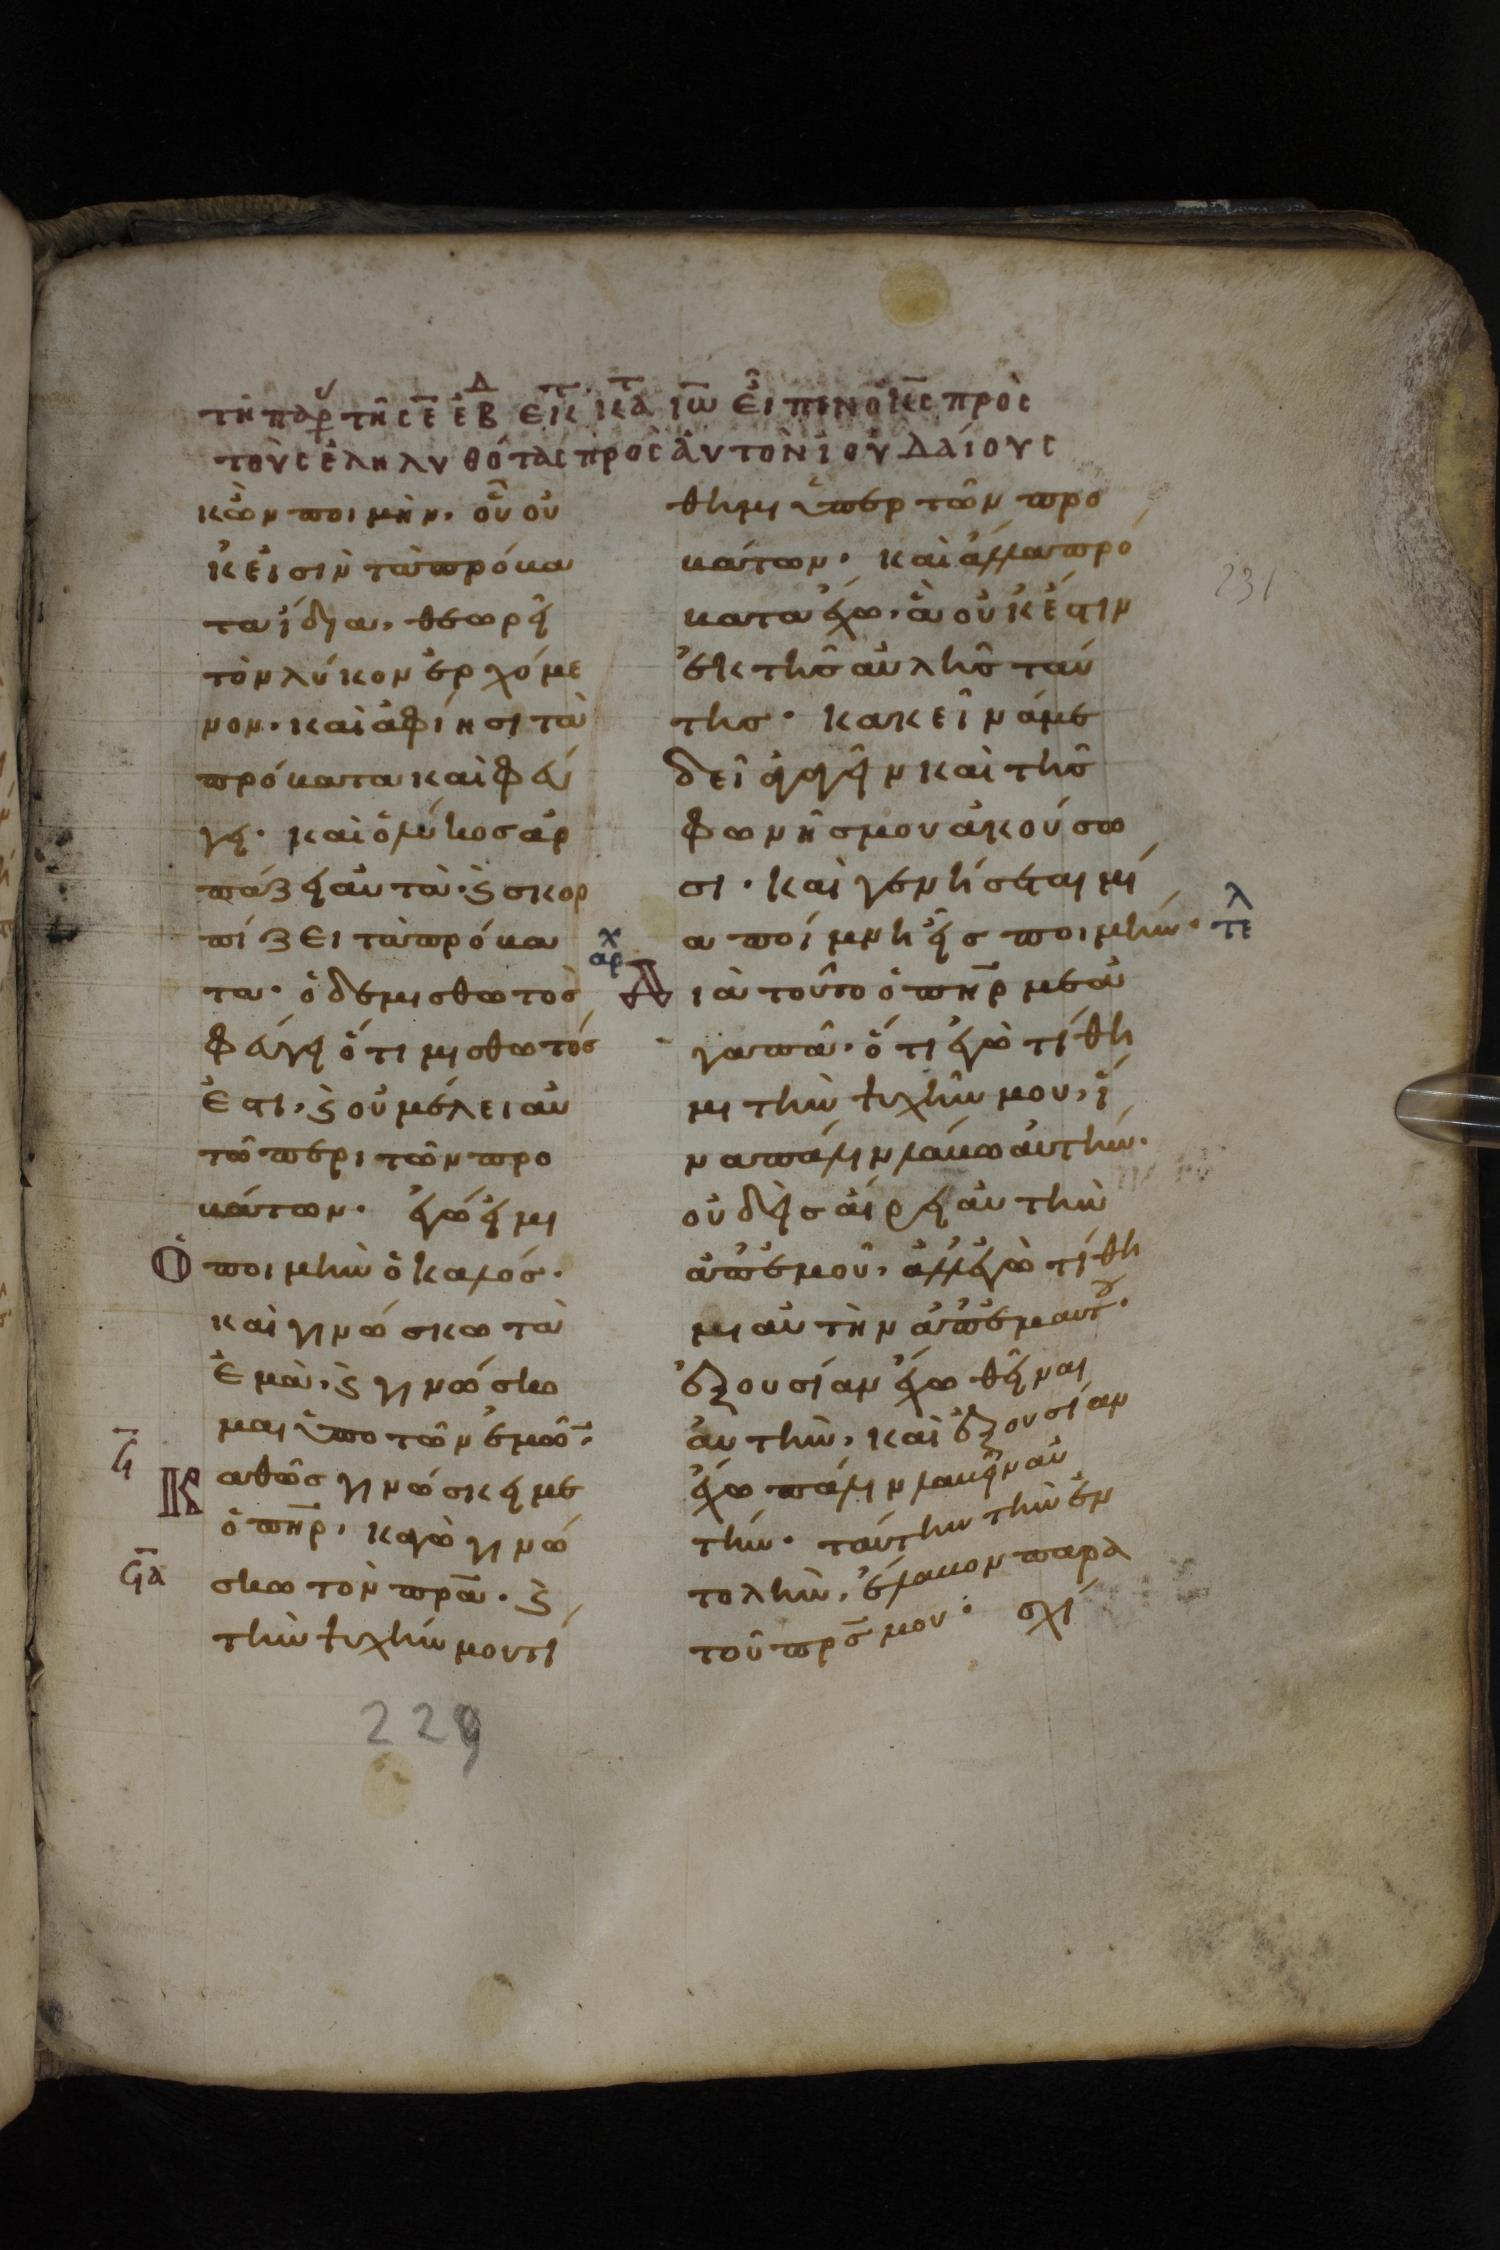 τῆ παρ τῆς ε ἑβδ ἐκ τ κτ ἰω εἶπεν ὁ κς πρὸς
τοὺς ἐληλυθότας πρὸς ἀυτὸν ἰουδαίους
κὼν ποιμὴν· οὗ οὐ
κ εἰσὶν τὰ πρόβα
τα ἴδια, θεωρεῖ
τὸν λύκον ἐρχόμε
νον· καὶ ἀφίησι τὰ
πρόβατα καὶ φεύ
γει· καὶ ὁ λύκος ἁρ
πάζει αυτὰ· ϗ σκορ
πίζει τὰ πρόβα
τα· ὁ δὲ μισθωτὸς
φεύγει ὅτι μισθωτός
ἐστι, ϗ οὐ μέλει αὐ
τῶ περι τῶν προ
βάτων· ἐγώ εἰμι
Ὁ ποιμὴν ὁ καλός·
καὶ γινώσκω τὰ
ἐμὰ, ϗ γινώσκο
μαι ὑπο τῶν ἐμῶ·
Κ αθῶς γινώσκει με
ὁ πηρ, καγὼ γινώ
σκω τὸν πρα· ϗ
τὴν ψυχήν μου τί
θημι ὑπερ τῶν προ
βάτων· καὶ ἄλλα πρό
βατα ἔχω, ἃ οὐκ ἔστιν
ἐκ τῆς αὐλῆς ταύ
της· κακεῖνά με
δεῖ ἀγαγεῖν καὶ τῆς
φωνῆς μου ἀκούσω
σι· καὶ γενήσεται μί
α ποίμνη εἷς ποιμήν· τελ
αρχ Δ ιὰ τοῦτο ὁ πηρ με ἀ
γαπᾶ· ὅτι ἐγὼ τίθη
μι τὴν ψυχὴν μου, ἵ
να πάλιν λάβω ἀυτήν·
οὐδεὶς αἴρει αὐτὴν
ἀπ' ἐμοῦ, ἀλλ' ἐγὼ τίθη
μι αὐτὴν ἀπ' ἐμαυτοῦ·
ἐξουσίαν ἔχω θεῖναι
ἀυτὴν, καὶ ἐξουσίαν
ἔχω πάλιν λαβεῖν αὐ
τήν· ταύτην τὴν ἐν
τολὴν, ἔλαβον παρὰ
τοῦ πρς μου· σχί
231
229